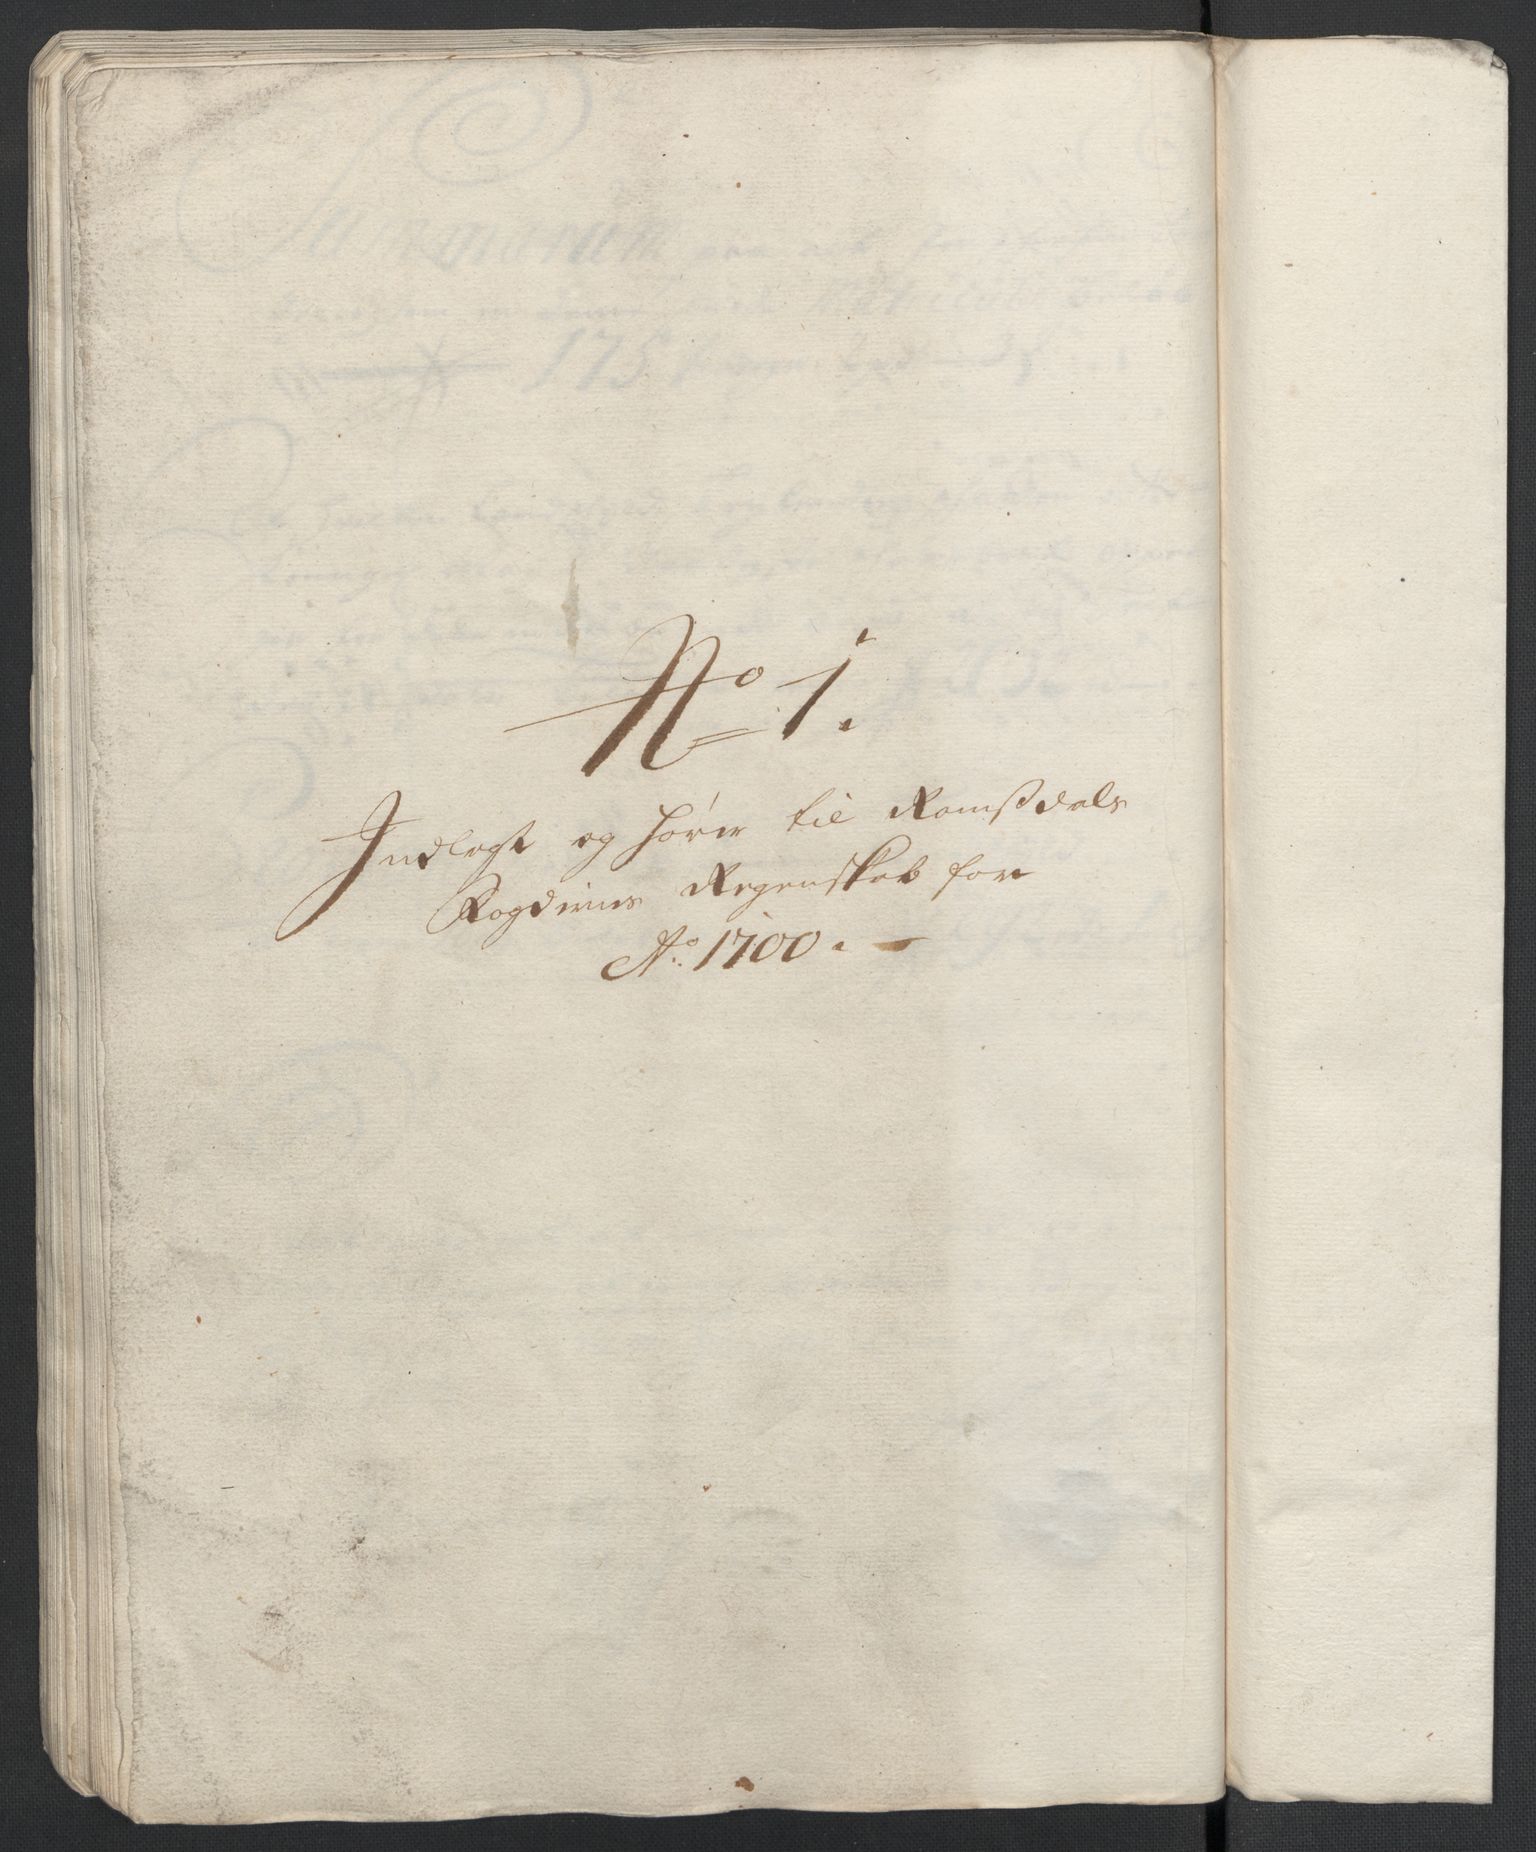 No 1.
Indlagt og hører til Romsdals
Fogderies Regenskab for
Ao. 1700.